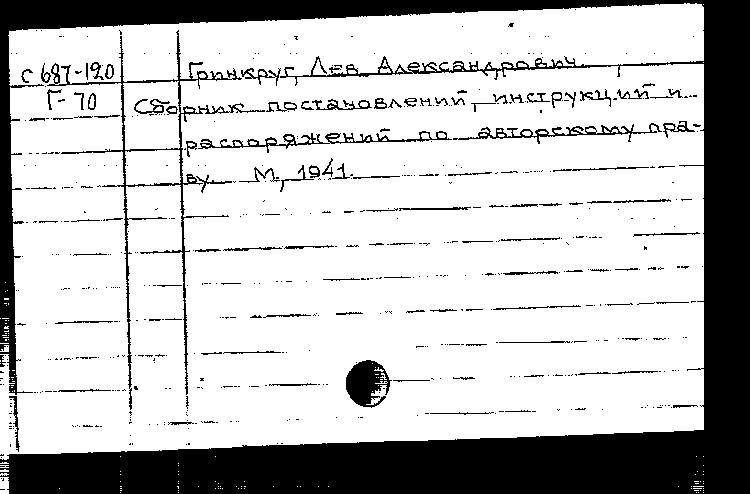 С 687-120 Гринкруг, Лев Александрович.
Г-70 Сборник постановлений, инструкций и
распоряжений по авторскому пра-
ву. М., 1941.